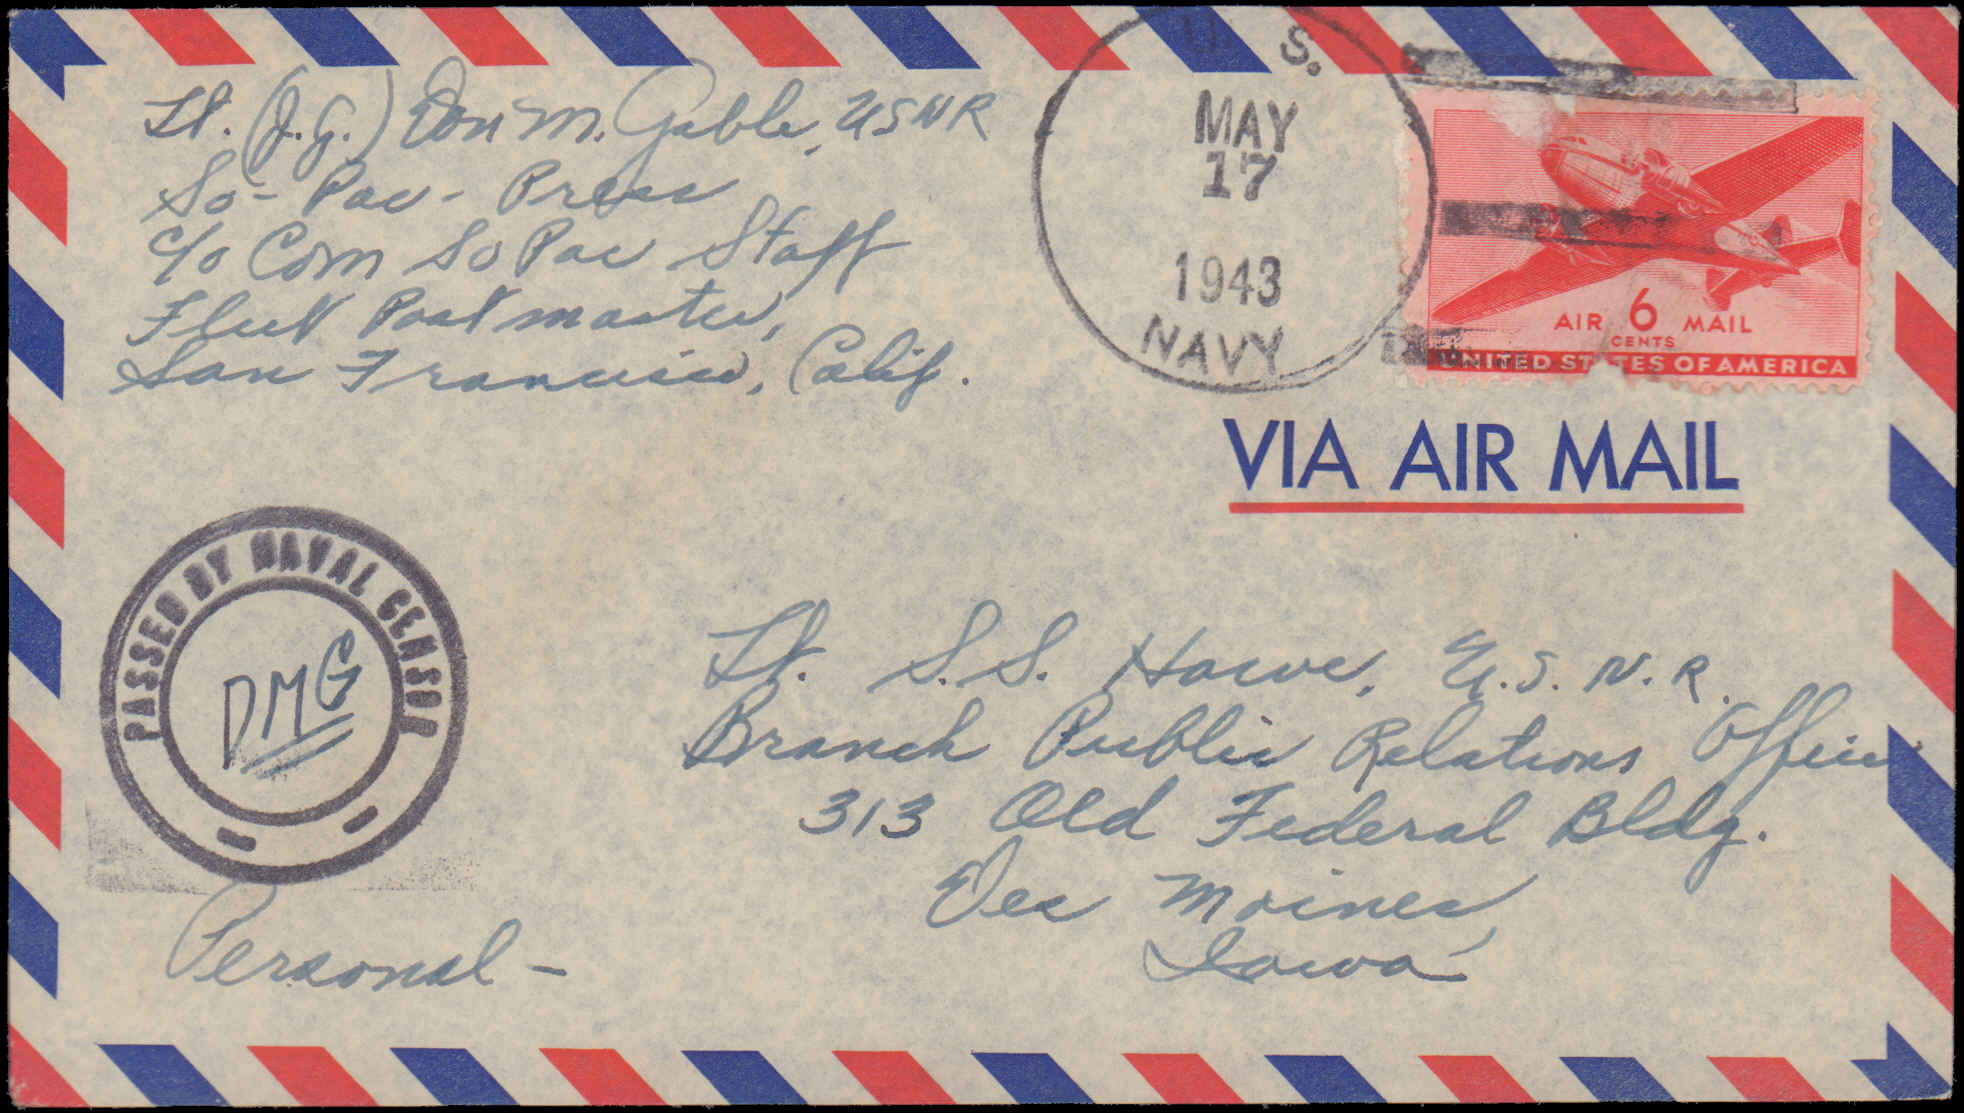 Lt. (J.G.) Don M. Gable, USNR
So-Pac-Press
c/o Com So Pac Staff
Fleet Postmaster,
San Francisco, Calif.
U. S.
MAY
17
1943
NAVY
AIR 6 MAIL
CENTS
UNITED STATES OF AMERICA
VIA AIR MAIL
PASSED BY NAVAL CENSOR
DMG
Lt. S.S. Howe, U.S.N.R.
Branch Public Relations Office
313 Old Federal Bldg.
Des Moines,
Iowa
Personal-